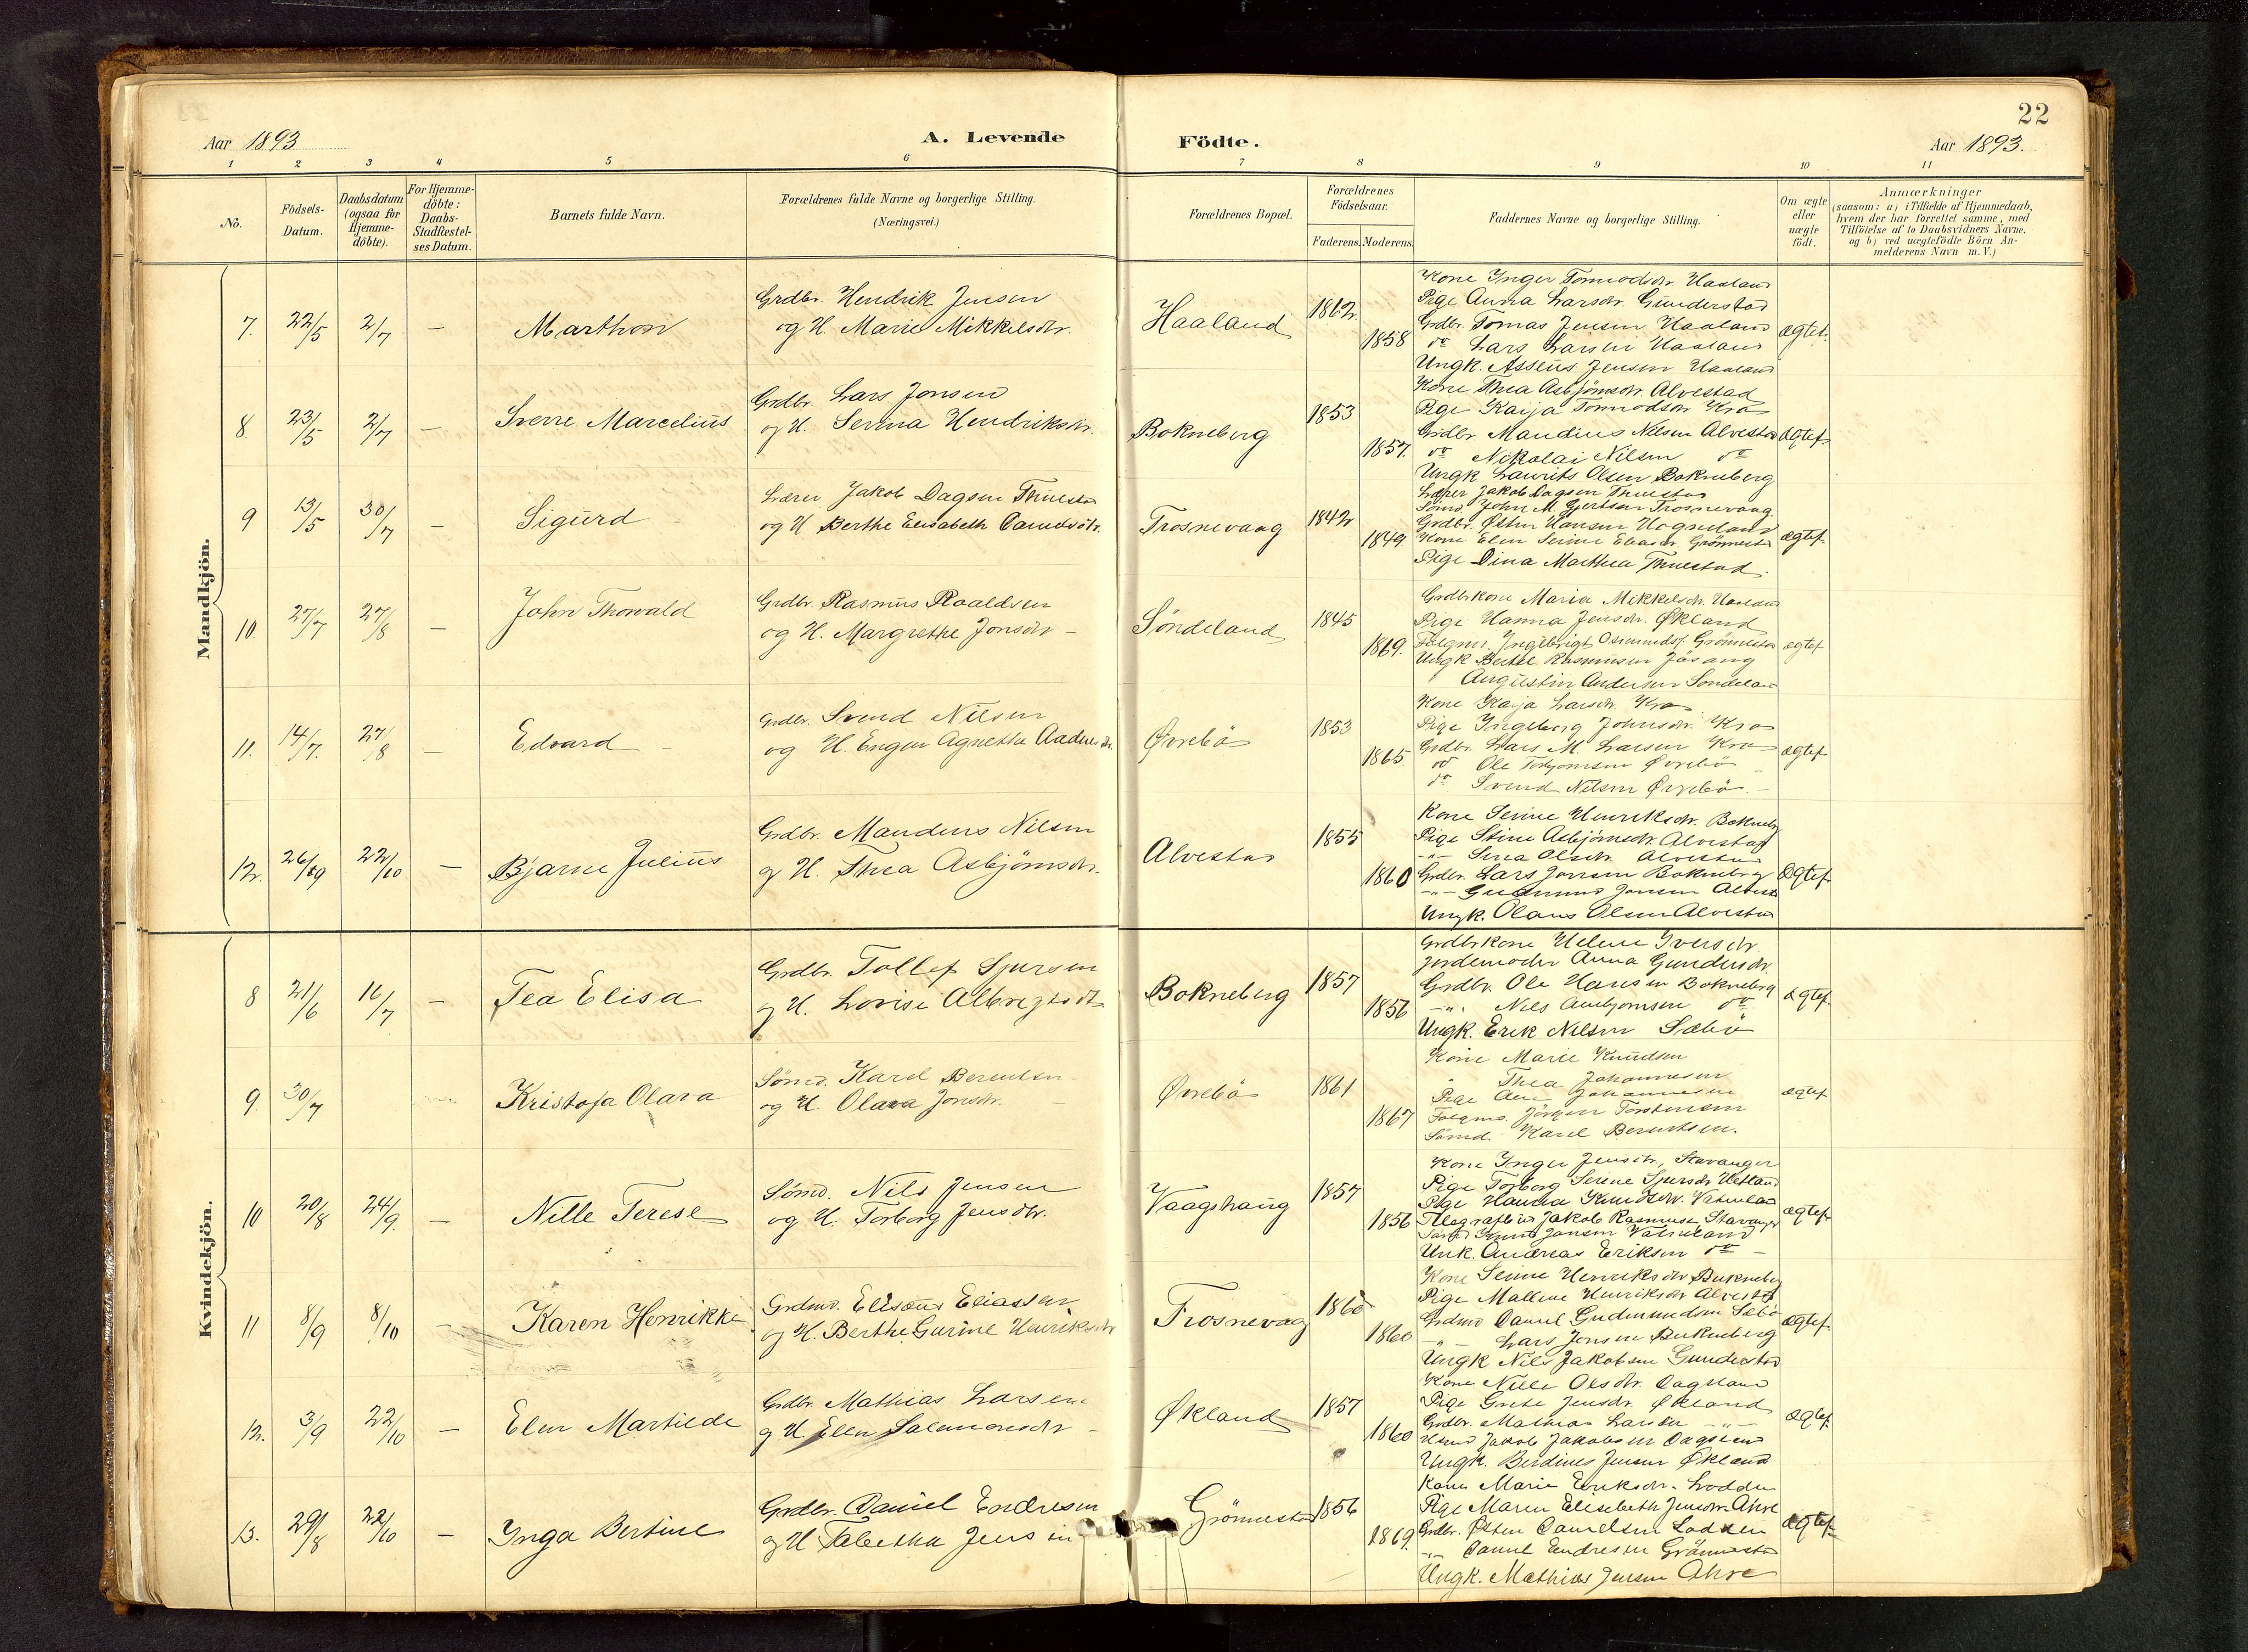 22
Aar 1893
A. Levende
Födte.
Aar 1893.
1 2 3 4 5 6 7 8 9 10 11
No.
Födsels-
Datum.
Daabsdatum
(ogsaa for
Hjemme-
döbte).
For Hjemme-
döbte:
Daabs-
Stadfæstel-
ses Datum.
Barnets fulde Navn.
Forældrenes fulde Navne og borgerlige Stilling.
(Næringsvei.)
Forældrenes Bopæl.
Forældrenes
Födselsaar.
Faderens. Moderens.
Faddernes Navne og borgerlige Stilling.
Om ægte
eller
uægte
födt.
Anmærkninger
(saasom: a) i Tilfælde af Hjemmedaab,
hvem der har forrettet samme, med
Tilföielse af to Daabsvidners Navne.
og b) ved uægtefödte Börn An-
melderens Navn m. V.)
Mandkjön.
7. 22/5 2/7 —
Grdbr. Hendrik Jensen
og H. Marie Mikkelsdtr.
Haaland
1862.
1858
Pige Anna Larsdtr. Gunderstad
Grdbr. Tomas Jensen Haaland
do Lars Larsen Haaland
Ungk. Jensen Haaland
ægtef.
8. 23/5 2/7 —
Sverre Marcelius
Grdbr. Lars Jonsen
og H. Serina Hendriksdtr.
Bokneberg
1853
1857.
Kone Thea Asbjörnsdtr. Alvestad
Pige Kaija Tormodsdtr. Kro
Grdbr. Maudius Nilsen Alvestad
do Nikolai Nilsen do
Ungk Laurits Olsen Bokneberg
ægtef.
9 13/5 30/7 —
Sigurd
Lærer Jakob Dagsen Thuestad
og H Berthe Elisabeth
Trosnevaag
1842
1849.
Lærer Jakob Dagsen Thuestad
Sömd. John M. Gjertsen Trosnevaag.
Grdbr. Östen Hansen Hogneland
Kone Elen Serine Eliasdr. Grönnestad
Pige Dina Marthea Thuestad.
ægtef.
10. 27/7 27/8 —
John Thorvald
Grdbr. Rasmus Roaldsen
og H. Margrethe Jonsdtr —
Söndeland
1845
1869.
Grdbrkone Maria Mikkelsdtr. Haaland
Pige Hanna Jensdtr. Økland
Ingebrigt Grönnestad
Ungk Bertel Rasmussen
Augustin Andersen Söndeland
ægtef
11. 14/7. 27/8 —
Edvard
Grdbr. Svend Nilsen
og H. Engen Agnethe
Øvrebö
1853
1865.
Kone Kaija Larsdtr. Kro
Pige Ingeborg Johnsdtr. Kro
Grdbr. Lars M. Larsen Kro
do Ole Øvrebö
do Svend Nilsen Øvrebö. —
ægtef
12. 26/9 22/10 —
Bjarne Julius
Grdbr. Maudius Nilsen
og H. Thea Asbjörnsdtr.
Alvestad
1855
1860
Kone Serine Henriksdtr. Bokneberg
Pige Stine Asbjörnsdtr. Alvestad
-"- Olsdtr. Alvestad
Grdbr. Lars Jonsen Bokneberg
-"- Gudmund Jonsen Alvestad
Ungk. Olaus Olsen Alvestad
ægtef
Kvindekjön.
8 21/6 16/7 —
Tea Elisa
Grdbr. Tollef Sjursen
og H. Lovise
Bokneberg
1857
1856
Grdbrkone Helene Iversdtr.
Jordemoder Anna Gundersdtr.
Grdbr. Ole Hansen Bokneberg
-"- Nils do
Ungk. Erik Nilsen Sæbö
ægtef.
9. 30/7
Kristofa Olava
Sömd. Karel Berentsen
og H. Olava Jonsdtr. —
Øvrebö
1861
1867
Kone Marie Knudsen
" Thea Johannesen
Pige Johannesen
Jörgen Torstensen
Sömd. Karel Berentsen.
ægtef
10 20/8 24/9. —
Nille Terese
Sömd. Nils Jensen
og H. Torborg Jensdtr.
Vaagshaug
1857
1856
Kone Inger Jensdtr, Stavanger
Pige Torborg Serine Sjursdtr Hetland
Pige Hanna Knudsdtr. Vatneland
Jakob Rasmussen Stavanger
Knud Jansen Vatneland
Unk. Andreas Eriksen do —
ægtef
11 8/9 8/10 —
Karen Henrikke
Grdmd. Elisæus Eliassen
og H. Berthe Gurine Henriksdtr
Trosnevag
1860
1860
Kone Serine Henriksdtr Bukneberg
Pige Mallene Henriksdtr Alvestad
Grdmd Daniel Gudmundsen Sæbö
-"- Lars Jonsen Bukneberg
Ungk Nils Jakobsen Gunderstad
ægtef.
12. 3/9 22/10 —
Elen Martilde
Grdbr Mathias Larsen
og H Ellen Salamonsdtr —
Økland
1857
1860
Kone Nille Olsdtr. Dagsland
Pige Grete Jensdtr. Økland
Grdbr. Mathias Larsen -"-
Jakob Jakobsen Dagsland
Ungk. Berdines Jensen Økland
ægtef.
13. 29/8 22/10 —
Inga Bertine
Grdbr. Daniel Endresen
og H Tabetha
Grönnestad
1856
1869.
Kone Marie Eriksdtr. Lodden
Pige Maren Elisebeth Jensdtr Ahre
Grdbr. Østen Danielsen Lodden
-"- Daniel Endresen Grönnestad
Ungk. Mathias Jensen Ahre
ægtef.